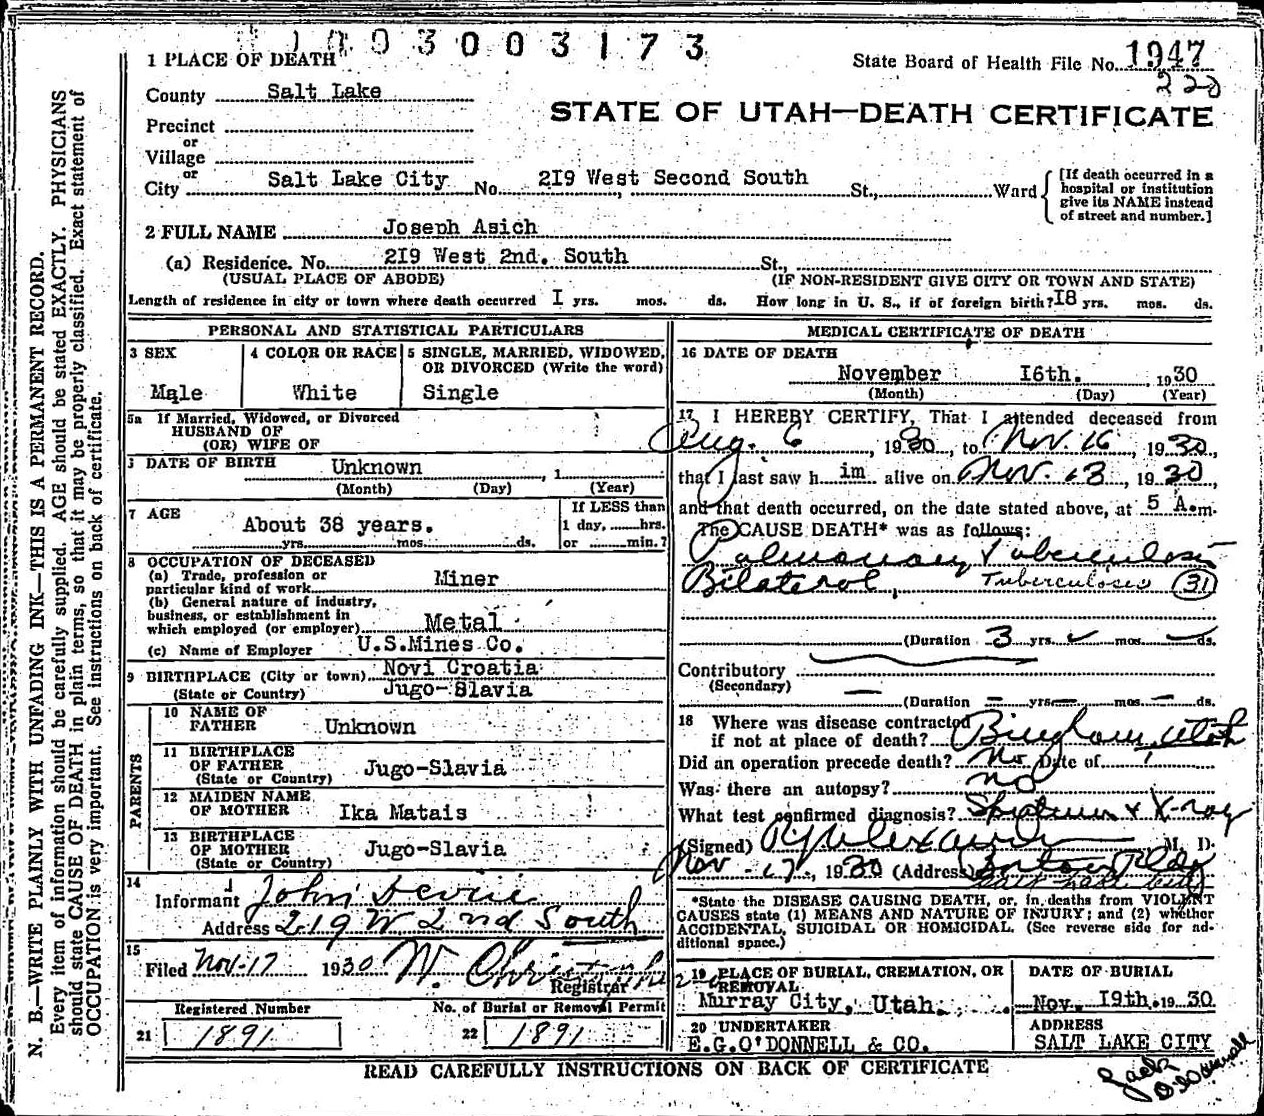 1003003173
1 PLACE OF DEATH
State Board of Health File No. 1947
220
County Salt Lake
STATE OF UTAH—DEATH CERTIFICATE
Precinct
or
Village
or
City Salt Lake City No. 2I9 West Second South St., Ward
[If death occurred in a
hospital or institution
give its NAME instead
of street and number.]
2 FULL NAME Joseph Asich
(a) Residence. No. 2I9 West 2nd. South St.,
(USUAL PLACE OF ABODE) (IF NON-RESIDENT GIVE CITY OR TOWN AND STATE)
Length of residence in city or town where death occurred I yrs. mos. ds. How long in U. S., if of foreign birth? I8 yrs. mos. ds.
PERSONAL AND STATISTICAL PARTICULARS
3 SEX
Male
4 COLOR OR RACE
White
5 SINGLE, MARRIED, WIDOWED,
OR DIVORCED (Write the word)
Single
5a If Married, Widowed, or Divorced
HUSBAND OF
(OR) WIFE OF
DATE OF BIRTH Unknown , 1
(Month) (Day) (Year)
7 AGE
About 38 years.
yrs. mos. ds.
If LESS than
1 day, hrs.
or min.?
8 OCCUPATION OF DECEASED
(a) Trade, profession or
particular kind of work Miner
(b) General nature of industry,
business, or establishment in
which employed (or employer) Metal
(c) Name of Employer U.S.Mines Co.
9 BIRTHPLACE (City or town) Novi Croatia
(State or Country) Jugo-Slavia
PARENTS
10 NAME OF
FATHER Unknown
11 BIRTHPLACE
OF FATHER
(State or Country) Jugo-Slavia
12 MAIDEN NAME
OF MOTHER Ika Matais
13 BIRTHPLACE
OF MOTHER
(State or Country) Jugo-Slavia
14
Informant John
Address 219 W 2nd South
15
Filed Nov-17 1930 W. Christopherson
Registrar
Registered Number
21 1891
No. of Burial or Removal Permit
22 1891
MEDICAL CERTIFICATE OF DEATH
16 DATE OF DEATH
November I6th. , 1930
(Month) (Day) (Year)
17 I HEREBY CERTIFY, That I attended deceased from
Aug. 6, 1930, to Nov. 16, 1930,
that I last saw h im alive on Nov. 13, 1930,
and that death occurred, on the date stated above, at 5 A.m.
The CAUSE DEATH* was as follows:
Pulmonary Tuberculosis
Bilateral, Tuberculosis 31
(Duration 3 yrs. mos. ds.
Contributory
(Secondary)
(Duration yrs. mos. ds.
18 Where was disease contracted
if not at place of death? Bingham, Utah
Did an operation precede death? No Date of
Was there an autopsy? no
What test confirmed diagnosis? Sputum & X-ray
(Signed) R J Alexander M. D.
Nov - 17, 1930 (Address) Boston Bldg
Salt Lake City
*State the DISEASE CAUSING DEATH, or, in deaths from VIOLENT
CAUSES state (1) MEANS AND NATURE OF INJURY; and (2) whether
ACCIDENTAL, SUICIDAL OR HOMICIDAL. (See reverse side for ad-
ditional space.)
19 PLACE OF BURIAL, CREMATION, OR
REMOVAL
Murray City, Utah.
DATE OF BURIAL
Nov. I9th. 1930
20 UNDERTAKER
E.G.O'DONNELL & CO.
ADDRESS
SALT LAKE CITY
READ CAREFULLY INSTRUCTIONS ON BACK OF CERTIFICATE
Jack
O'Donnell
N. B.—WRITE PLAINLY WITH UNFADING INK—THIS IS A PERMANENT RECORD.
Every item of information should be carefully supplied. AGE should be stated EXACTLY. PHYSICIANS
should state CAUSE OF DEATH in plain terms, so that it may be properly classified. Exact statement of
OCCUPATION is very important. See instructions on back of certificate.